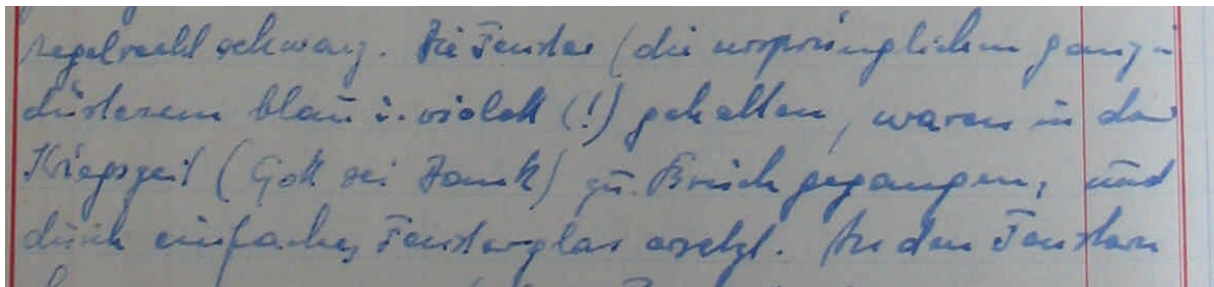 regelrecht schwarz. Die Fenster (die ursprünglichen ganz in
düsterem blau u. violett (!) gehalten, waren in der
Kriegszeit (Gott sei Dank) zu Bruch gegangen, und
durch einfaches Fensterglas ersetzt. An den Fenstern